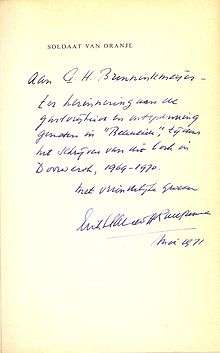 SOLDAAT VAN ORANJE
Aan G. H. Brenninkmeijer -
ter herinnering aan de
gastvrijheid en ontspanning
genoten in "Beaulieu" tijdens
het schrijven van dit boek in
Doorwerth, 1969-1970.
Met vriendelijke groeten
Mei 1971